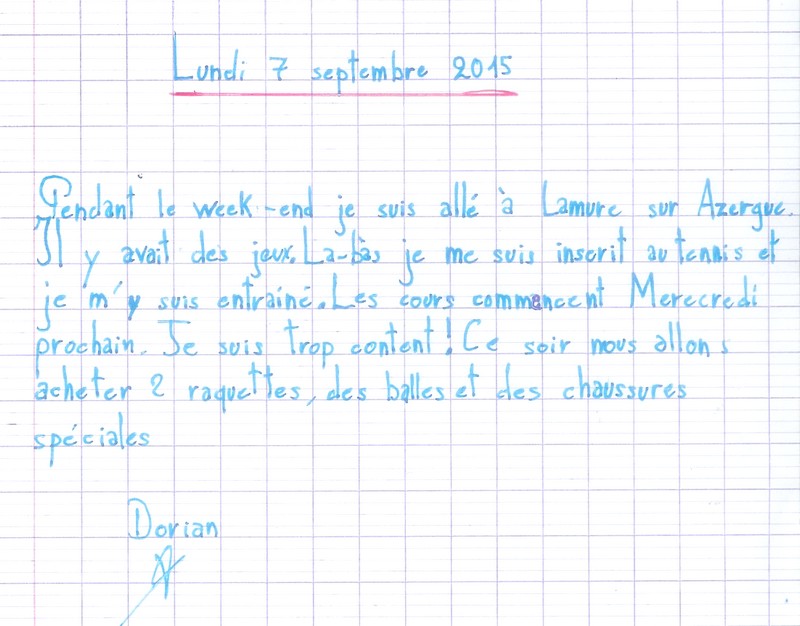 Lundi 7 septembre 2015
Pendant le week-end je suis allé à Lamure sur Azergue.
Il y avait des jeux. La-bàs je me suis inscrit au tennis et
je m'y suis entraîné. Les cours commencent Merecredi
prochain. Je suis trop content ! Ce soir nous allons
acheter 2 raquettes, des balles et des chaussures
spéciales
Dorian